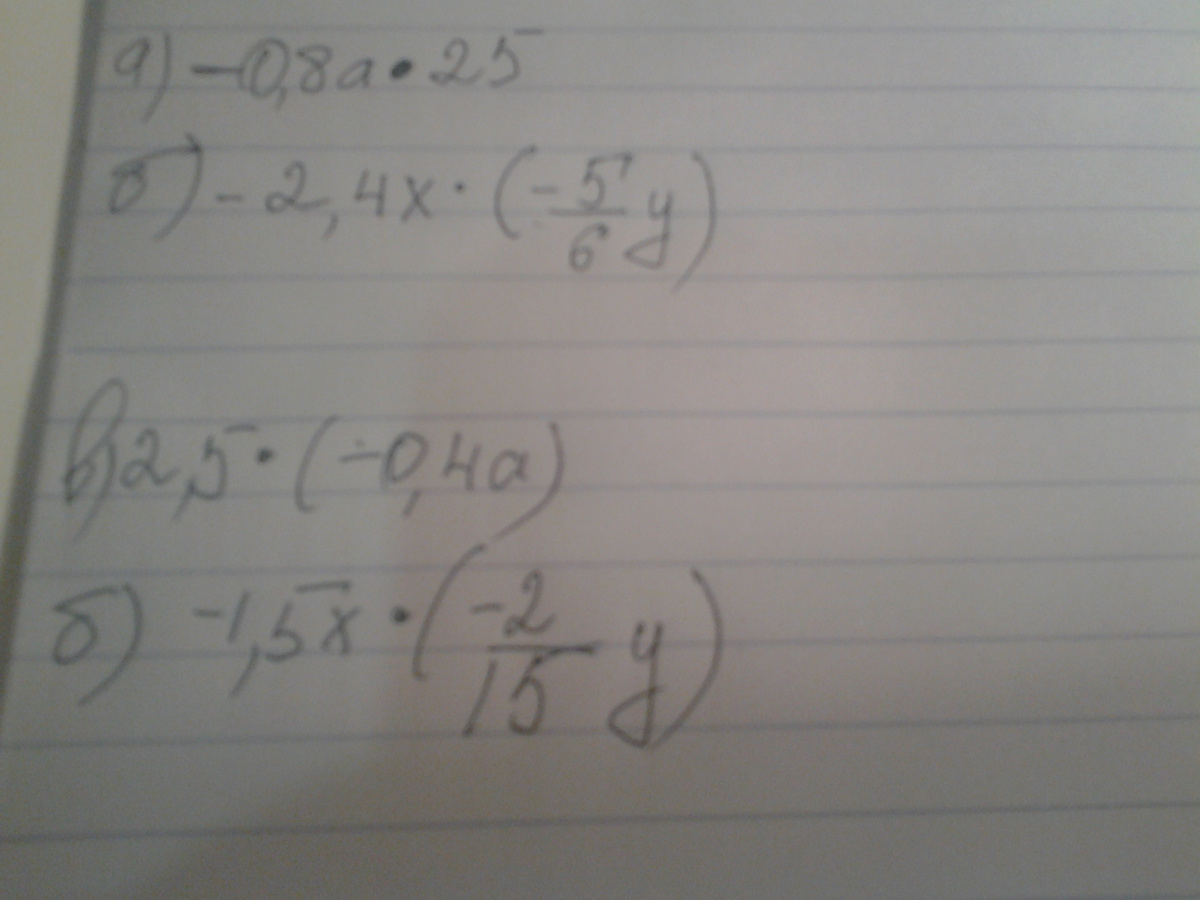 а) -0,8a • 25
б) - 2,4x · (-5/6 y)
в) 2,5 • (-0,4a)
б) -1,5x • (-2/15 y)